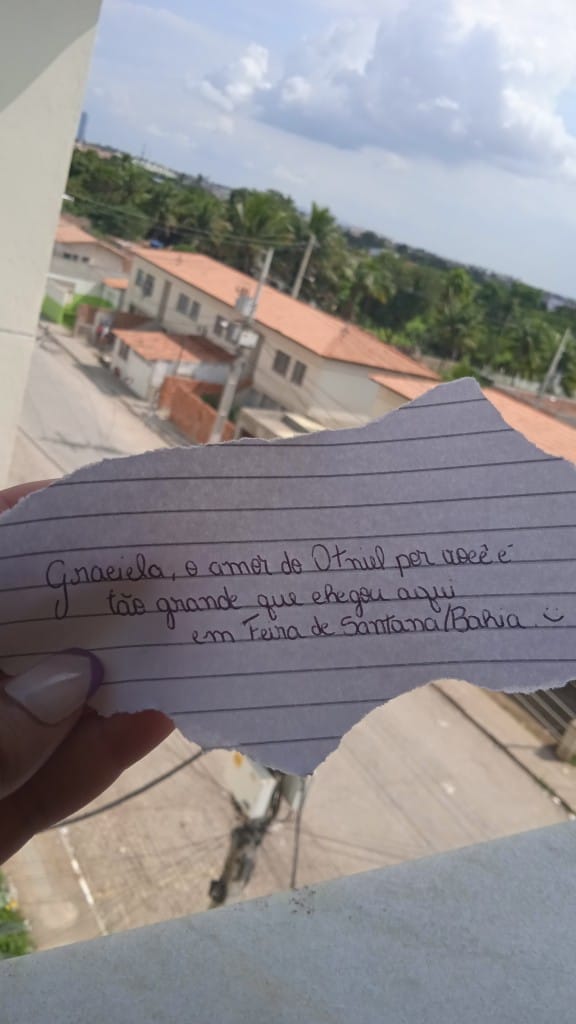 Graciela, o amor do Otniel por você é
tão grande que chegou aqui
em Feira de Santana/Bahia :)